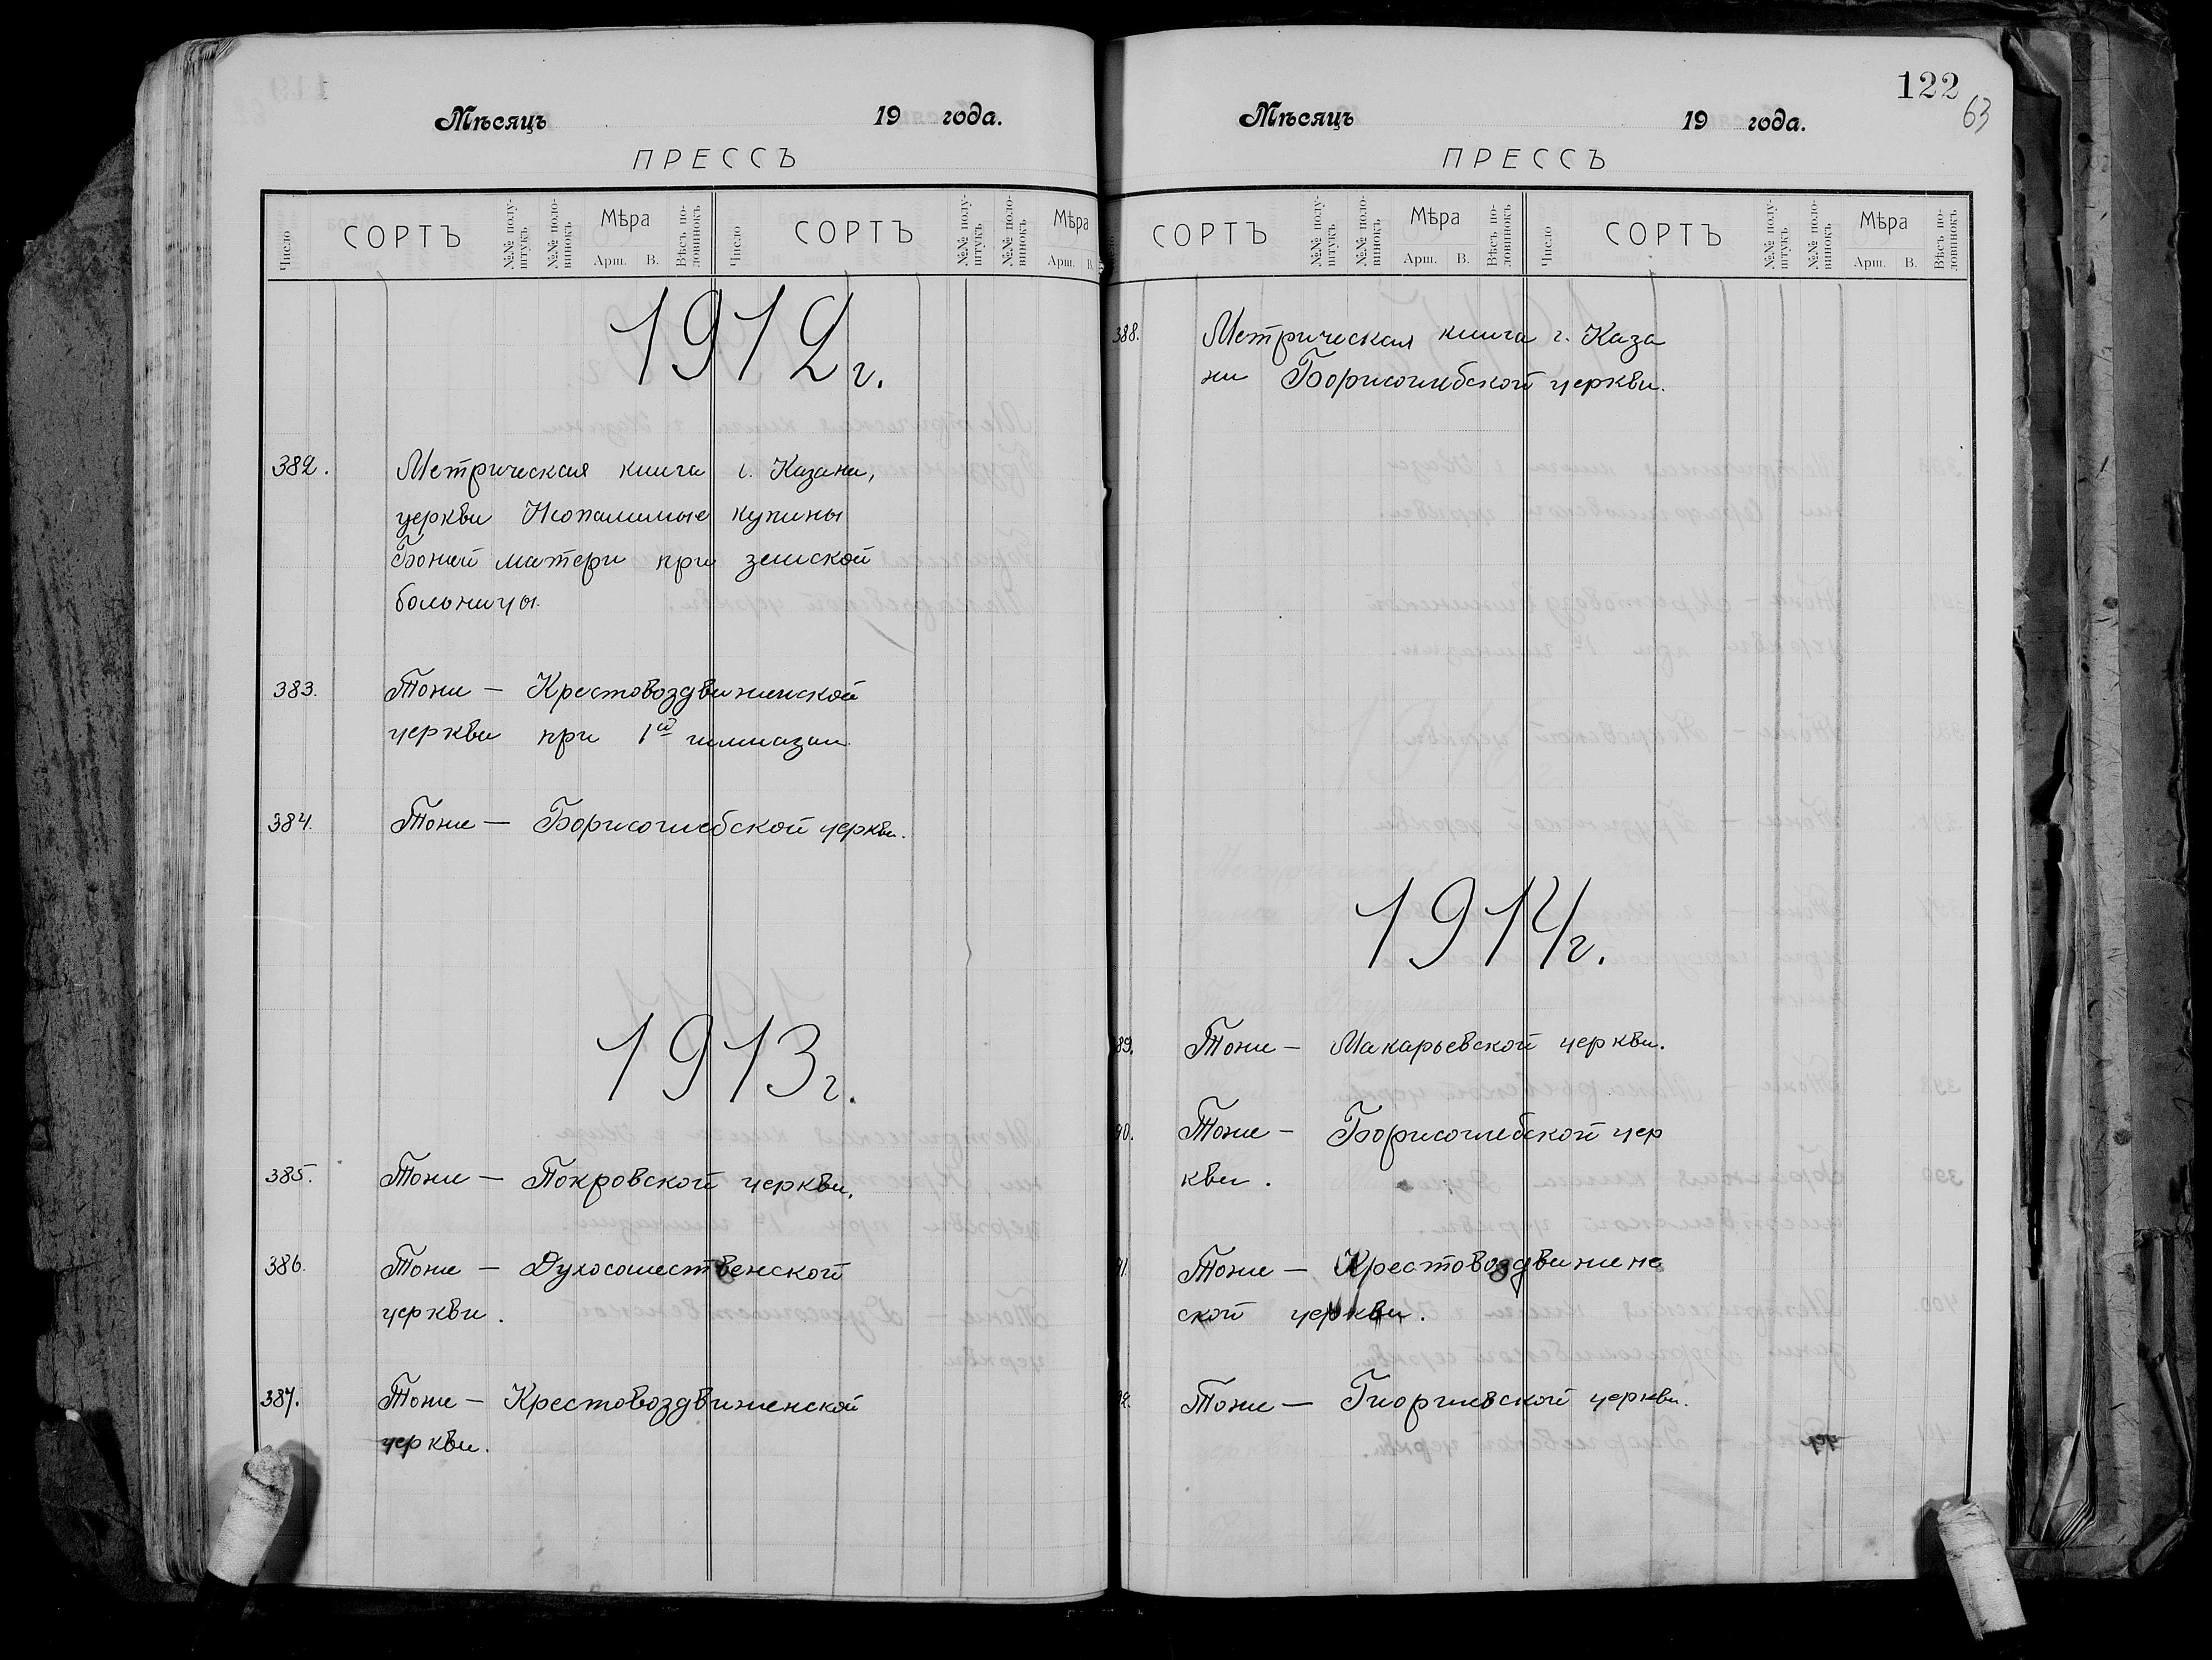 Мѣсяцъ 19 года.
ПРЕССЪ
Число СОРТЪ №№ полу-штукъ №№ поло-винокъ Мѣра Арш. В. Вѣсъ по-ловинокъ Число СОРТЪ №№ полу-штукъ №№ поло-винокъ Мѣра Арш. В.
1912 г.
382. Метрическая книга г. Казани,
церкви Неопалимые купины
Божией матери при земской
больницы.
383. Тоже — Крестовоздвиженской
церкви при 1й гимназии.
384. Тоже — Борисоглебской церкви.
1913 г.
385. Тоже — Покровской церкви.
386. Тоже — Духосошественской
церкви.
387. Тоже — Крестовоздвиженской
церкви.
122
63
Мѣсяцъ 19 года.
ПРЕССЪ
СОРТЪ №№ полу-штукъ №№ поло-винокъ Мѣра Арш. В. Вѣсъ по-ловинокъ Число СОРТЪ №№ полу-штукъ №№ поло-винокъ Мѣра Арш. В. Вѣсъ по-ловинокъ
388. Метрическая книга г. Каза
ни Борисоглебской церкви.
1914 г.
89. Тоже — Макарьевской церкви.
90. Тоже — Борисоглебской цер
кви.
91. Тоже — Крестовоздвижене
ской церкви.
92. Тоже — Гиоргиевской церкви.